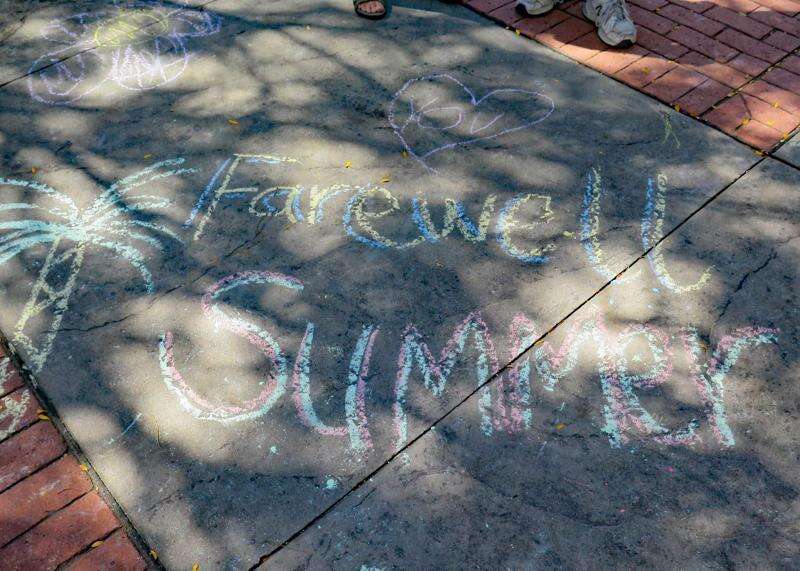 You
Farewell
SUMMer